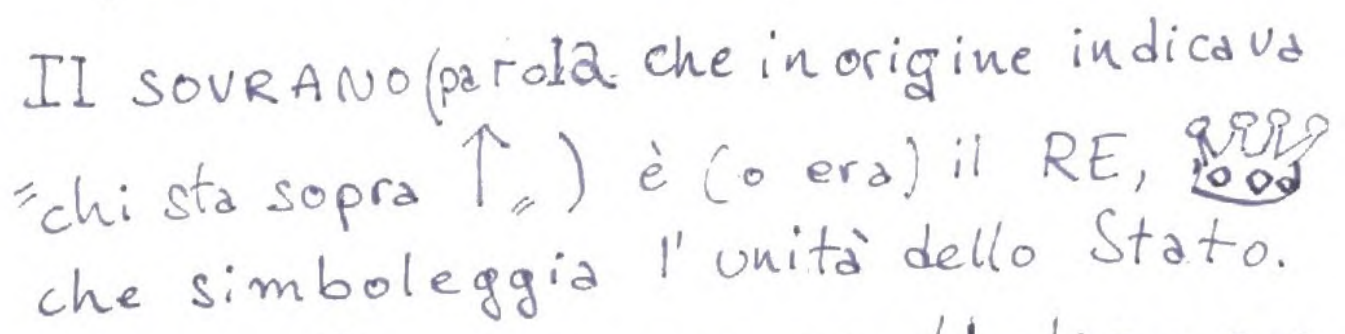 Il SOVRANO (parola che in origine indicava
"chi sta sopra ↑") è (o era) il RE,
che simboleggia l'unità dello Stato.